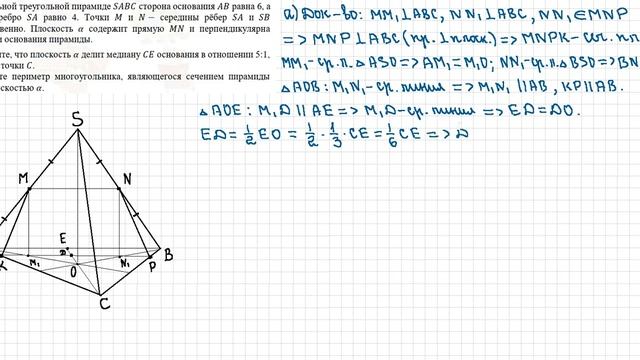 ьной треугольной пирамиде SABC сторона основания AB равна 6, а
ребро SA равно 4. Точки M и N – середины рёбер SA и SB
венно. Плоскость α содержит прямую MN и перпендикулярна
и основания пирамиды.
ите, что плоскость α делит медиану CE основания в отношении 5:1,
точки C.
те периметр многоугольника, являющегося сечением пирамиды
оскостью α.
а) Док-во: MM₁⊥ABC, NN₁⊥ABC, NN₁∈MNP
=> MNP⊥ABC (пр. ⊥ плоск.) => MNPK-
MM₁-ср.л. △ASO => AM₁=M₁O; NN₁-ср.л. △BSO => BN
△AOB: M₁N₁-ср. линия => M₁N₁ || AB, KP || AB.
△AOE: M₁D || AE => M₁D-ср. линия => ED=DO.
ED = 1/2 EO = 1/2 · 1/3 · CE = 1/6 CE => D
S
M
N
E
D
B
K
M₁
O
N₁
P
C